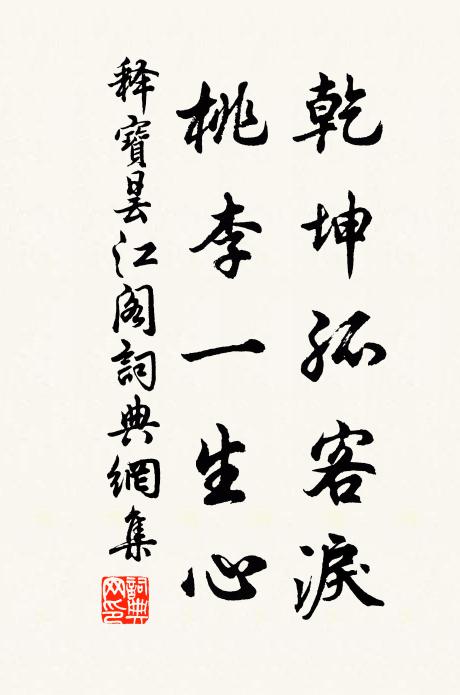 乾坤孤客淚
桃李一生心
释寶曇江阁詞典網集
詞典网印